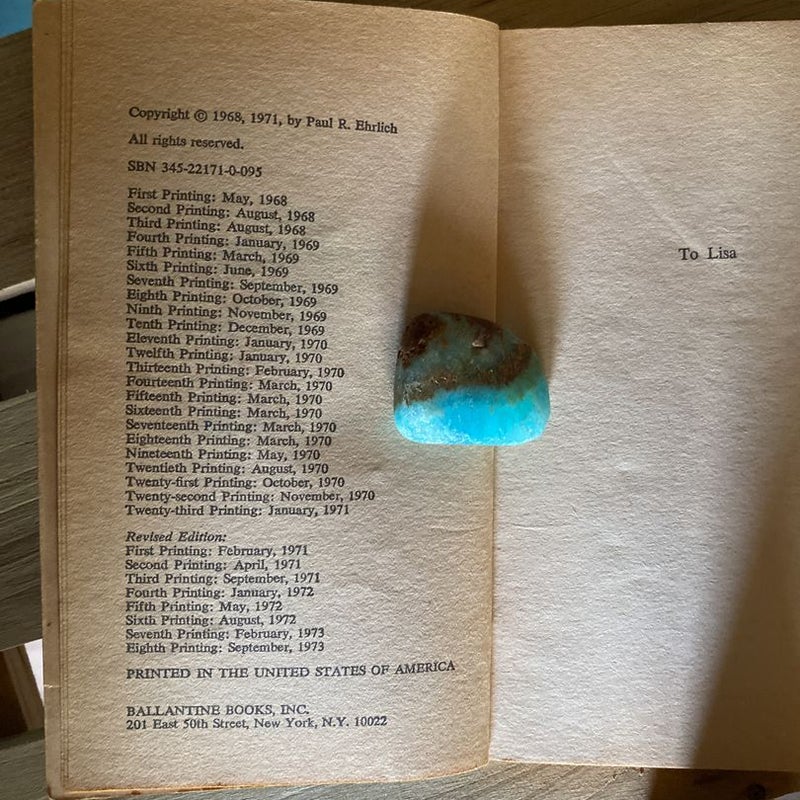 Copyright © 1968, 1971, by Paul R. Ehrlich
All rights reserved.
SBN 345-22171-0-095
First Printing: May, 1968
Second Printing: August, 1968
Third Printing: August, 1968
Fourth Printing: January, 1969
Fifth Printing: March, 1969
Sixth Printing: June, 1969
Seventh Printing: September, 1969
Eighth Printing: October, 1969
Ninth Printing: November, 1969
Tenth Printing: December, 1969
Eleventh Printing: January, 1970
Twelfth Printing: January, 1970
Thirteenth Printing: February, 1970
Fourteenth Printing: March, 1970
Fifteenth Printing: March, 1970
Sixteenth Printing: March, 1970
Seventeenth Printing: March, 1970
Eighteenth Printing: March, 1970
Nineteenth Printing: May, 1970
Twentieth Printing: August, 1970
Twenty-first Printing: October, 1970
Twenty-second Printing: November, 1970
Twenty-third Printing: January, 1971
Revised Edition:
First Printing: February, 1971
Second Printing: April, 1971
Third Printing: September, 1971
Fourth Printing: January, 1972
Fifth Printing: May, 1972
Sixth Printing: August, 1972
Seventh Printing: February, 1973
Eighth Printing: September, 1973
PRINTED IN THE UNITED STATES OF AMERICA
BALLANTINE BOOKS, INC.
201 East 50th Street, New York, N.Y. 10022
To Lisa